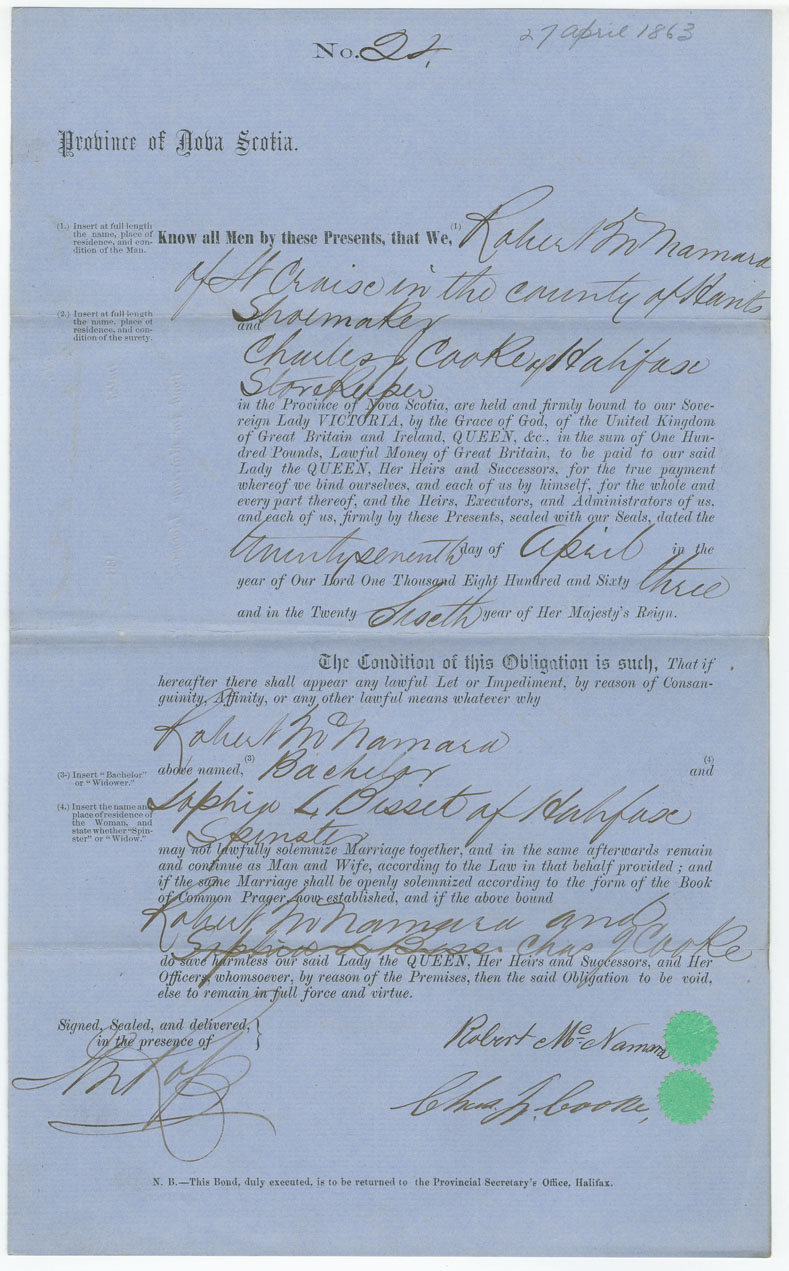 27 April 1863
No. 24.
Province of Nova Scotia.
(1.) Insert at full length
the name, place of
residence, and con-
dition of the Man.
Know all Men by these Presents, that We, (1) Robert McNamara
of St Croise in the county of Hants
Shoemaker
(2.) Insert at full length
the name, place of
residence, and con-
dition of the surety.
and
Charles J Cooke of Halifax
Storekeeper
in the Province of Nova Scotia, are held and firmly bound to our Sove-
reign Lady VICTORIA, by the Grace of God, of the United Kingdom
of Great Britain and Ireland, QUEEN, &c., in the sum of One Hun-
dred Pounds, Lawful Money of Great Britain, to be paid to our said
Lady the QUEEN, Her Heirs and Successors, for the true payment
whereof we bind ourselves, and each of us by himself, for the whole and
every part thereof, and the Heirs, Executors, and Administrators of us,
and each of us, firmly by these Presents, sealed with our Seals, dated the
twenty seventh day of April in the
year of Our Lord One Thousand Eight Hundred and Sixty three
and in the Twenty Sixth year of Her Majesty's Reign.
The Condition of this Obligation is such, That if
hereafter there shall appear any lawful Let or Impediment, by reason of Consan-
guinity, Affinity, or any other lawful means whatever why
Robert McNamara
(3-) Insert "Bachelor"
or "Widower."
above named, (3) Bachelor (4) and
(4.) Insert the name and
place of residence of
the Woman, and
state whether "Spin-
ster" or "Widow."
Sophia L Bisset of Halifax
Spinster
may not lawfully solemnize Marriage together, and in the same afterwards remain
and continue as Man and Wife, according to the Law in that behalf provided ; and
if the same Marriage shall be openly solemnized according to the form of the Book
of Common Prager, now established, and if the above bound
Robert McNamara and
Sophia L Biss Chas J Cooke
do save harmless our said Lady the QUEEN, Her Heirs and Successors, and Her
Officers, whomsoever, by reason of the Premises, then the said Obligation to be void,
else to remain in full force and virtue.
Signed, Sealed, and delivered,
in the presence of }
Robert McNamara
Chas. J. Cooke,
N. B.—This Bond, duly executed, is to be returned to the Provincial Secretary's Office, Halifax.